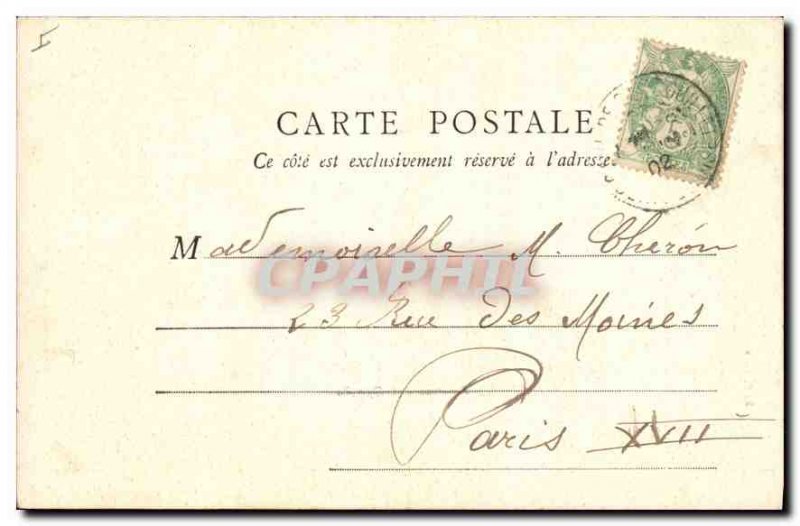 CARTE POSTALE
Ce côté est exclusivement réservé à l'adresse
Mademoiselle M. Cheron
23 Rue des Moines
Paris XVII
CPAPHIL
02